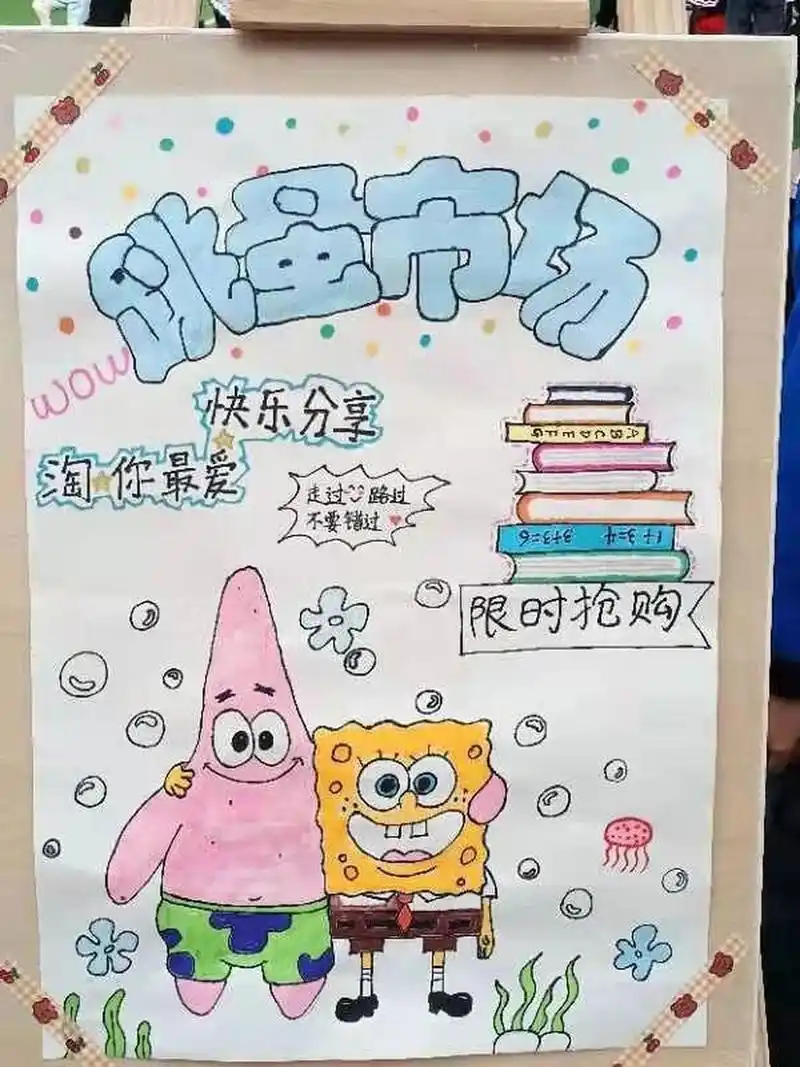 跳蚤市场
wow
快乐分享
淘你最爱
走过路过
不要错过
ABCDEFG
1+3=4 3+3=6
限时抢购